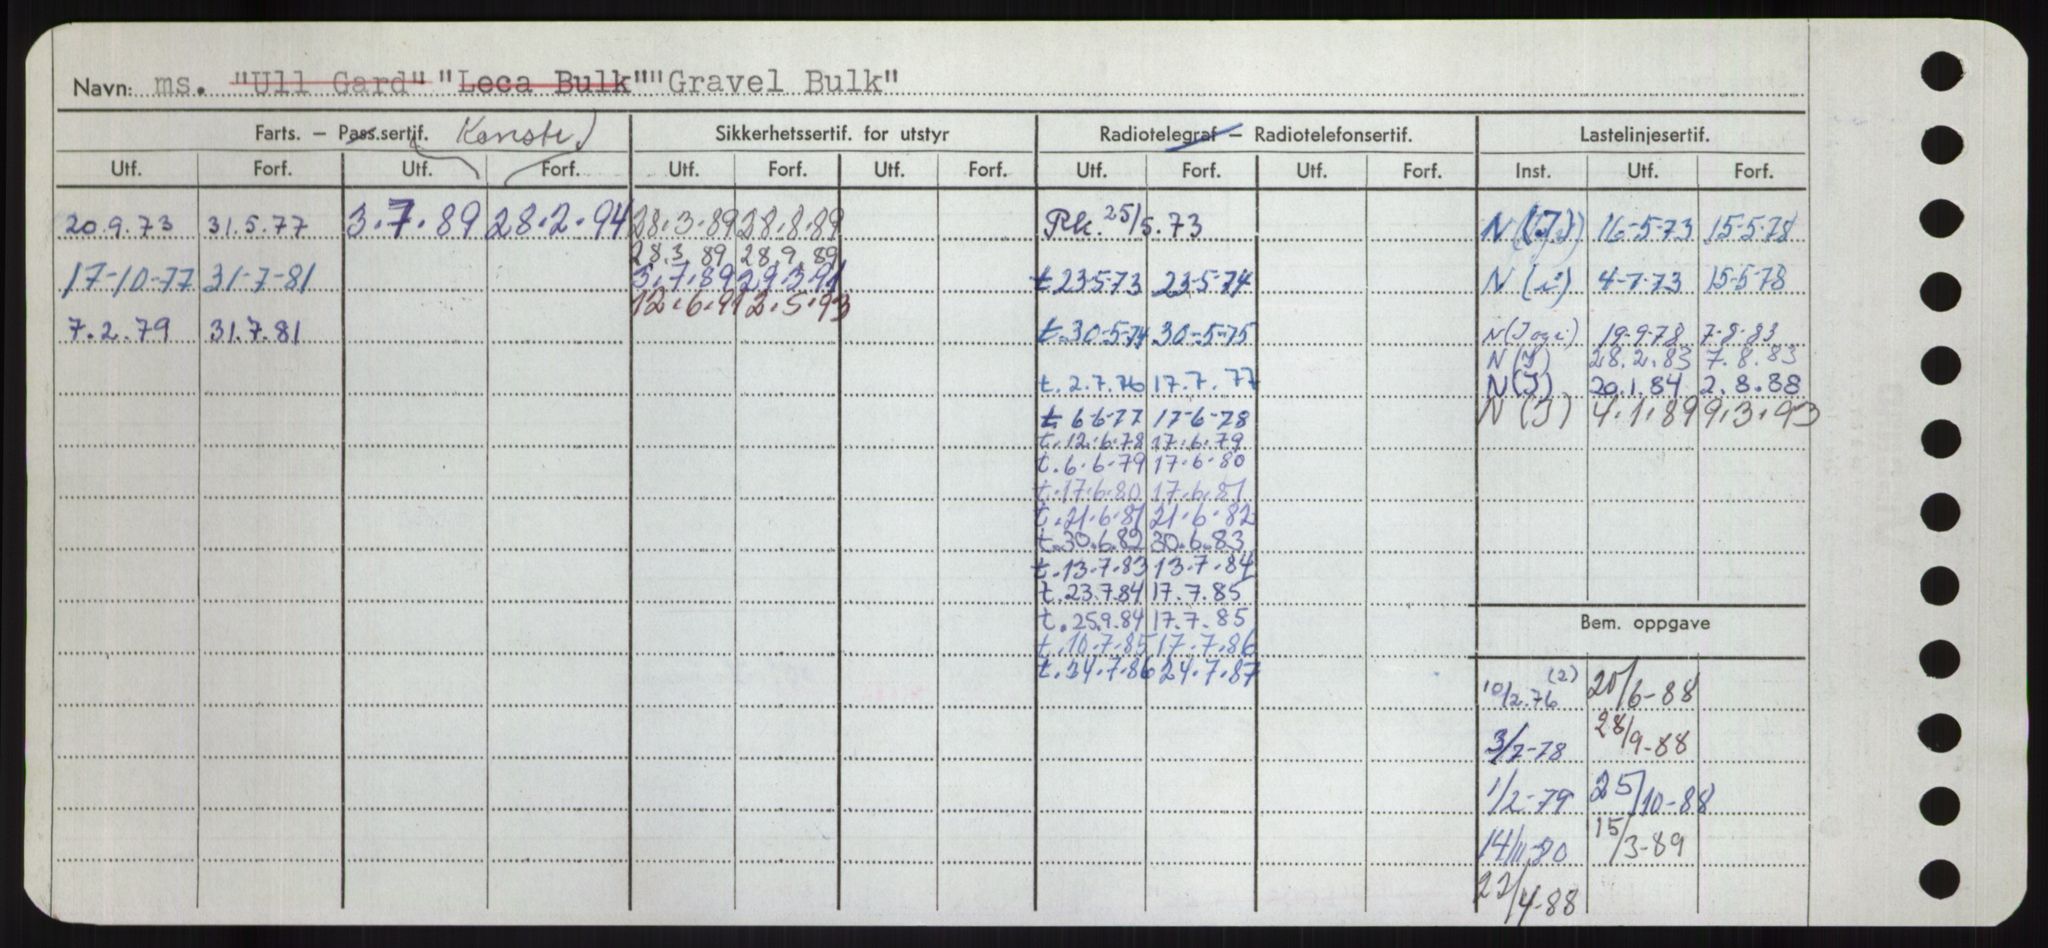 Navn: ms. "Ull Gard" "Leca Bulk" "Gravel Bulk"
Farts. – Pass.sertif. Konstr. Sikkerhetssertif. for utstyr Radiotelegraf – Radiotelefonsertif. Lastelinjesertif.
Utf. Forf. Utf. Forf. Utf. Forf. Utf. Forf. Utf. Forf. Utf. Forf. Inst. Utf. Forf.
20.9.73 31.5.77 3.7.89 28.2.94 28.3.89 28.8.89 Rk. 25/5.73 N (J) 16-5-73 15-5-78
28.3.89 28.9.89
17-10-77 31-7-81 3.7.89 29.3.91 t 23-5-73 23-5-74 N (i) 4-7-73 15-5-78
12.6.91 2.5.93
7.2.79 31.7.81 t.30-5-74 30-5-75 N (J og i) 19-9-78 7-8-83
N (J) 28.2.83 7.8.83
t.2.7.76 17.7.77 N (J) 20.1.84 2.8.88
t 6-6-77 17-6-78 N (J) 4.1.89 9.3.93
t.12.6.78 17.6.79
t.6.6.79 17.6.80
t.17.6.80 17.6.81
t.21.6.81 21.6.82
t.30.6.82 30.6.83
t.13.7.83 13.7.84
t.23.7.84 17.7.85
t.25.9.84 17.7.85
Bem. oppgave
t.10.7.85 17.7.86
t.24.7.86 24.7.87
10/2.76 (2) 20/6-88
3/7-78 28/9-88
1/2-79 25/10-88
14/11-80 15/3-89
22/4-88